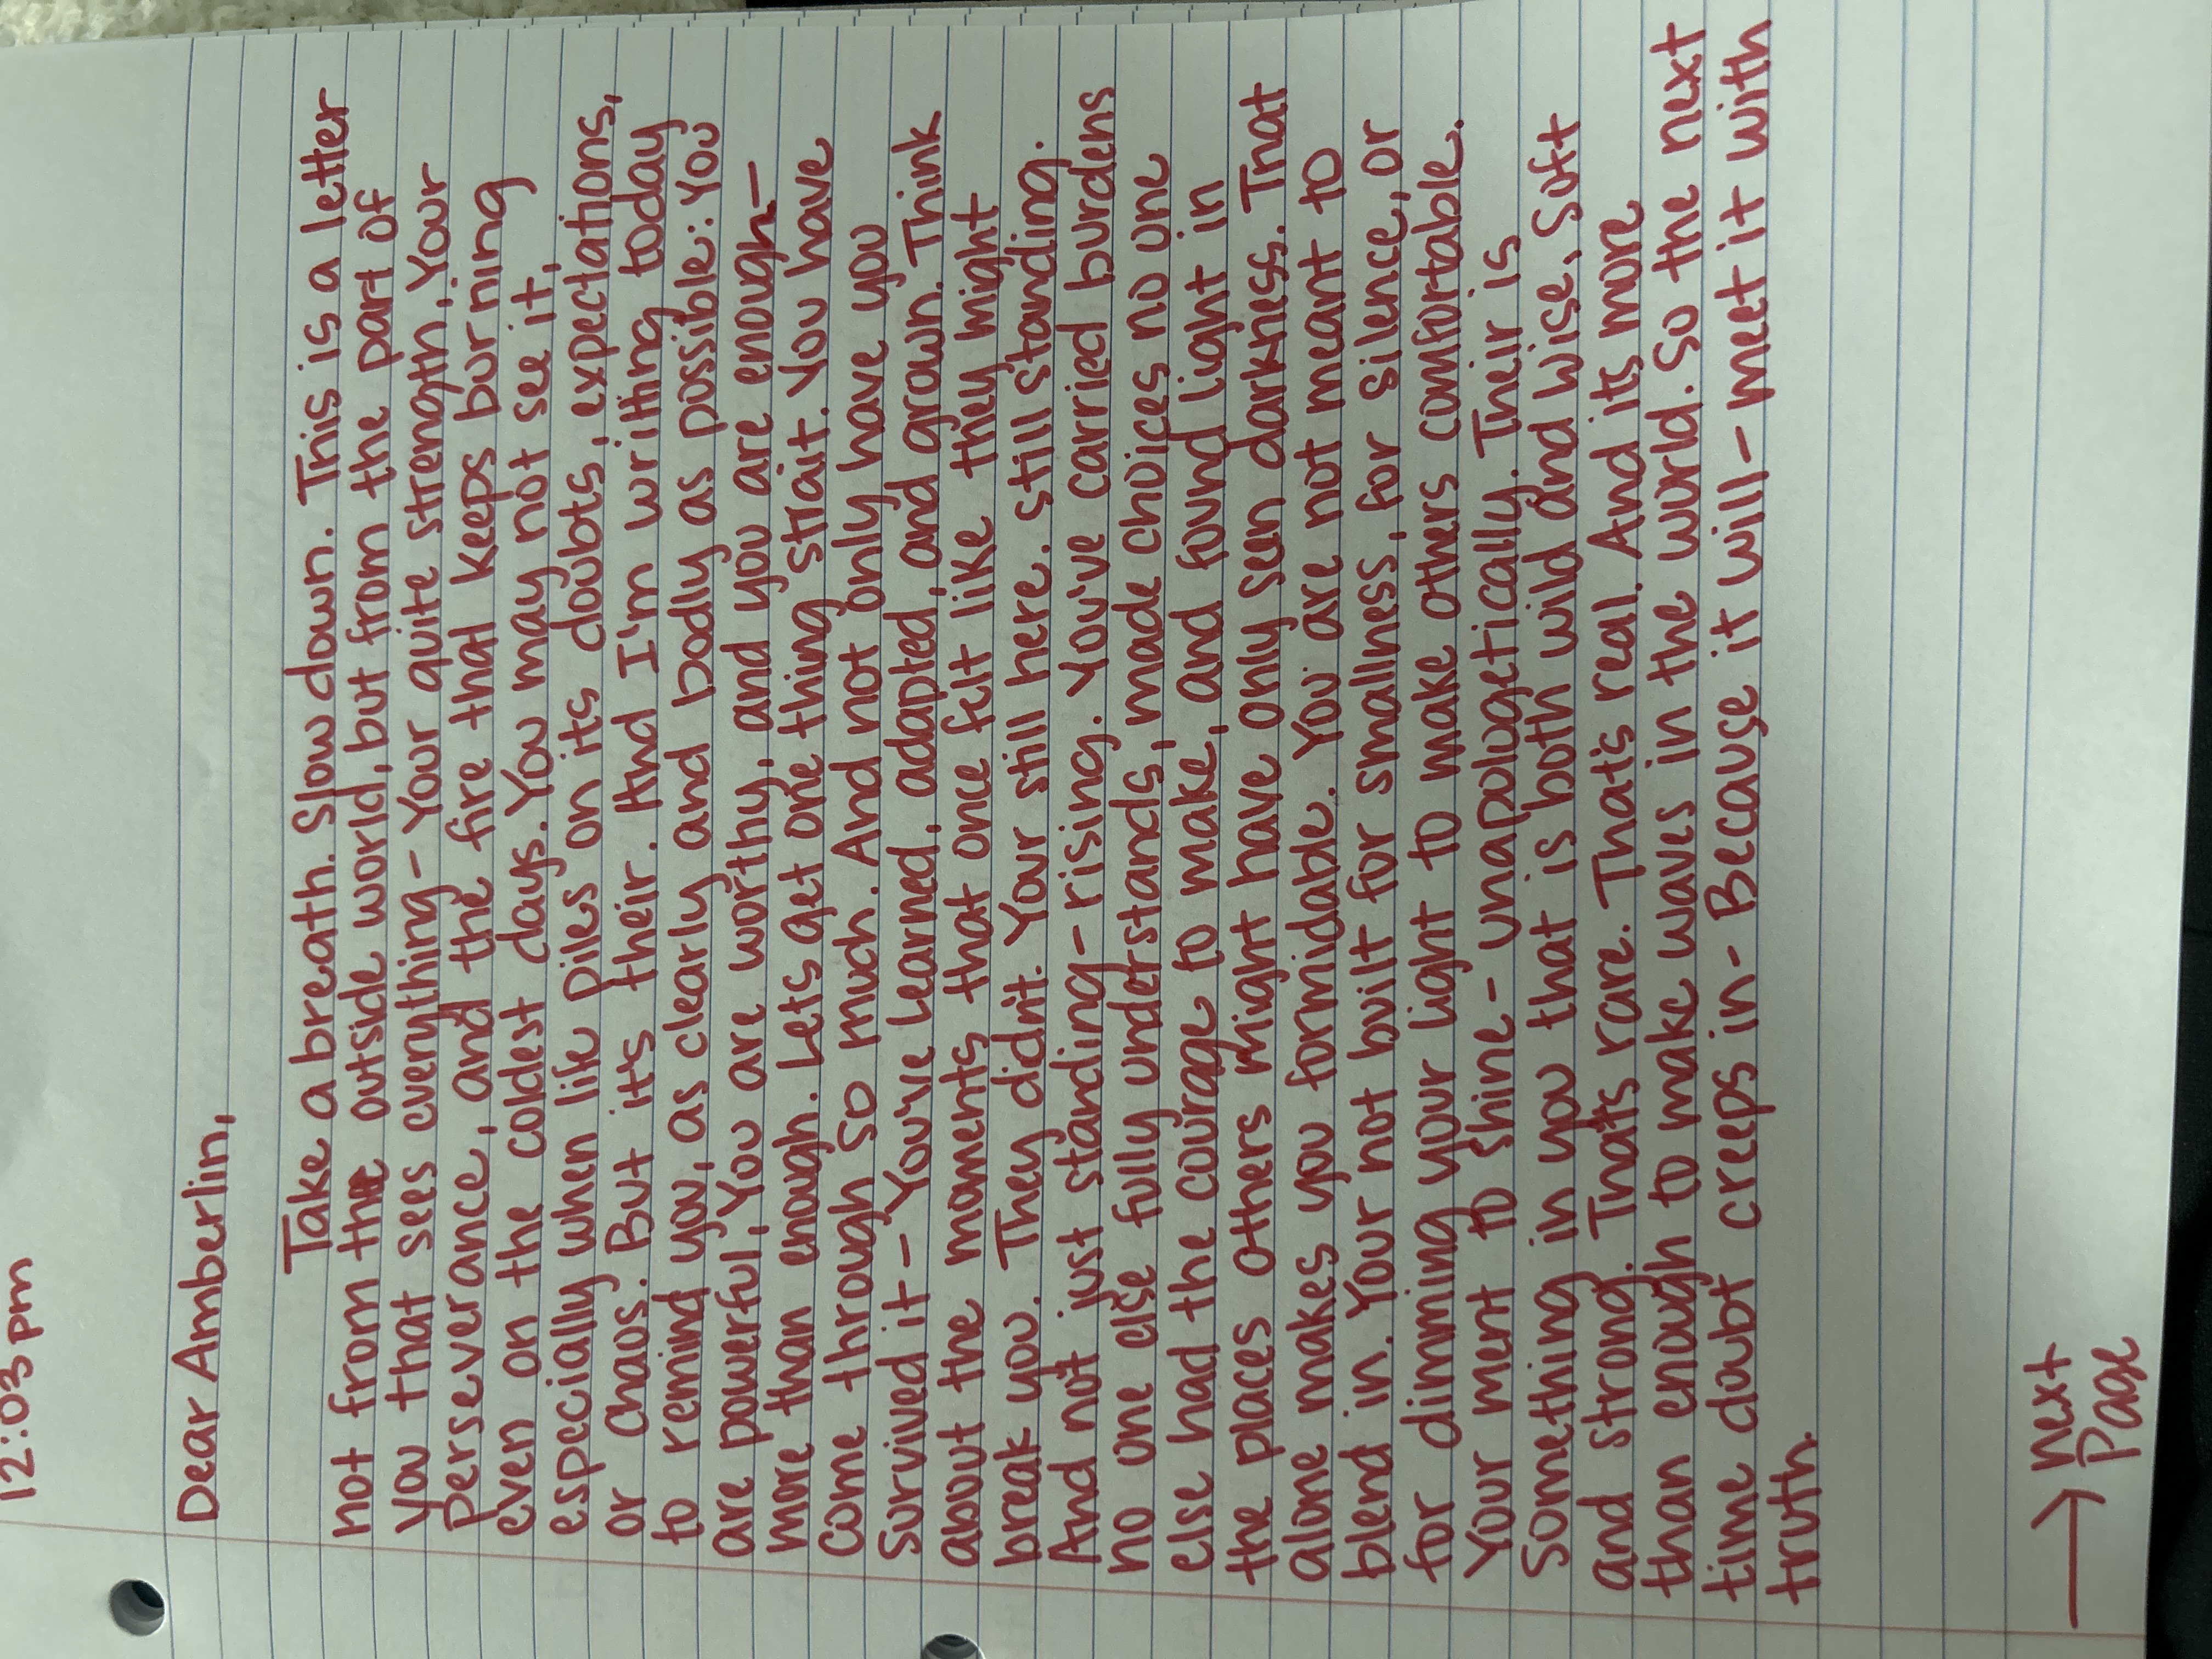 12:03pm
Dear Amberlin,
Take a breath. Slow down. This is a letter
not from the outside world, but from the part of
you that sees everything - Your quite strength, Your
perseverance, and the fire that keeps burning
even on the coldest days. You may not see it,
especially when life piles on its doubts, expectations,
or chaos. But it's their. And I'm writing today
to remind you, as clearly and bodly as possible: You
are powerful, You are worthy, and you are enough-
more than enough. Lets get one thing strait. You have
come through so much. And not only have you
survived it - You've learned, adapted, and grown. Think
about the moments that once felt like they might
break you. They didn't. Your still here, still standing.
And not just standing - rising. You've carried burdens
no one else fully understands, made choices no one
else had the courage to make, and found light in
the places others might have only seen darkness. That
alone makes you formidable. You are not meant to
blend in. Your not built for smallness, for silence, or
for dimming your light to make others comfortable.
Your ment to shine - unapologetically. Their is
Something in you that is both wild and wise, soft
and strong. Thats rare. Thats real. And its more
than enough to make waves in the world. So the next
time doubt creeps in - Because it will - meet it with
truth.
→ next
Page